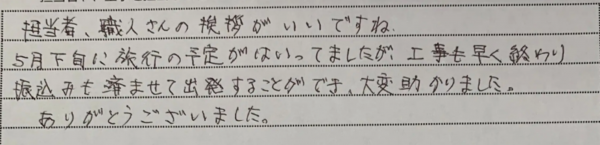 担当者、職人さんの挨拶がいいですね。
5月下旬に旅行の予定がはいってましたが、工事も早く終わり
振込みも済ませて出発することができ、大変助かりました。
ありがとうございました。